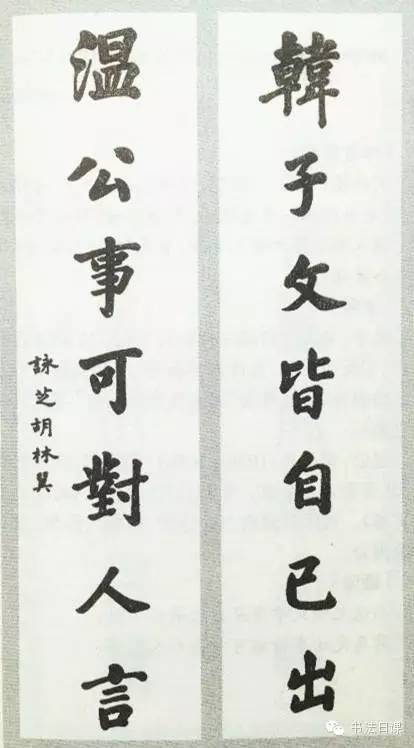 韓子文皆自己出
温公事可對人言
詠芝胡林翼
书法日课